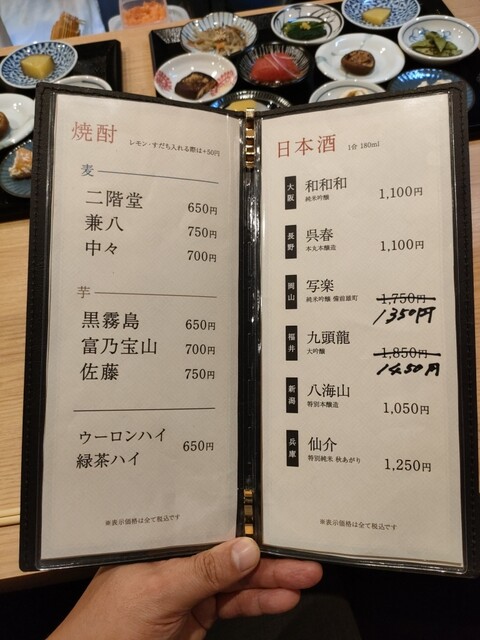 焼酎 レモン・すだち入れる際は+50円
麦
二階堂 650円
兼八 750円
中々 700円
芋
黒霧島 650円
富乃宝山 700円
佐藤 750円
ウーロンハイ
緑茶ハイ
650円
※表示価格は全て税込です
日本酒 1合 180ml
大阪 和和和 1,100円
純米吟醸
長野 呉春 1,100円
本丸本醸造
岡山 写楽 1,750円
純米吟醸 備前雄町
1350円
福井 九頭龍 1,850円
大吟醸
1450円
新潟 八海山 1,050円
特別本醸造
兵庫 仙介 1,250円
特別純米 秋あがり
※表示価格は全て税込です